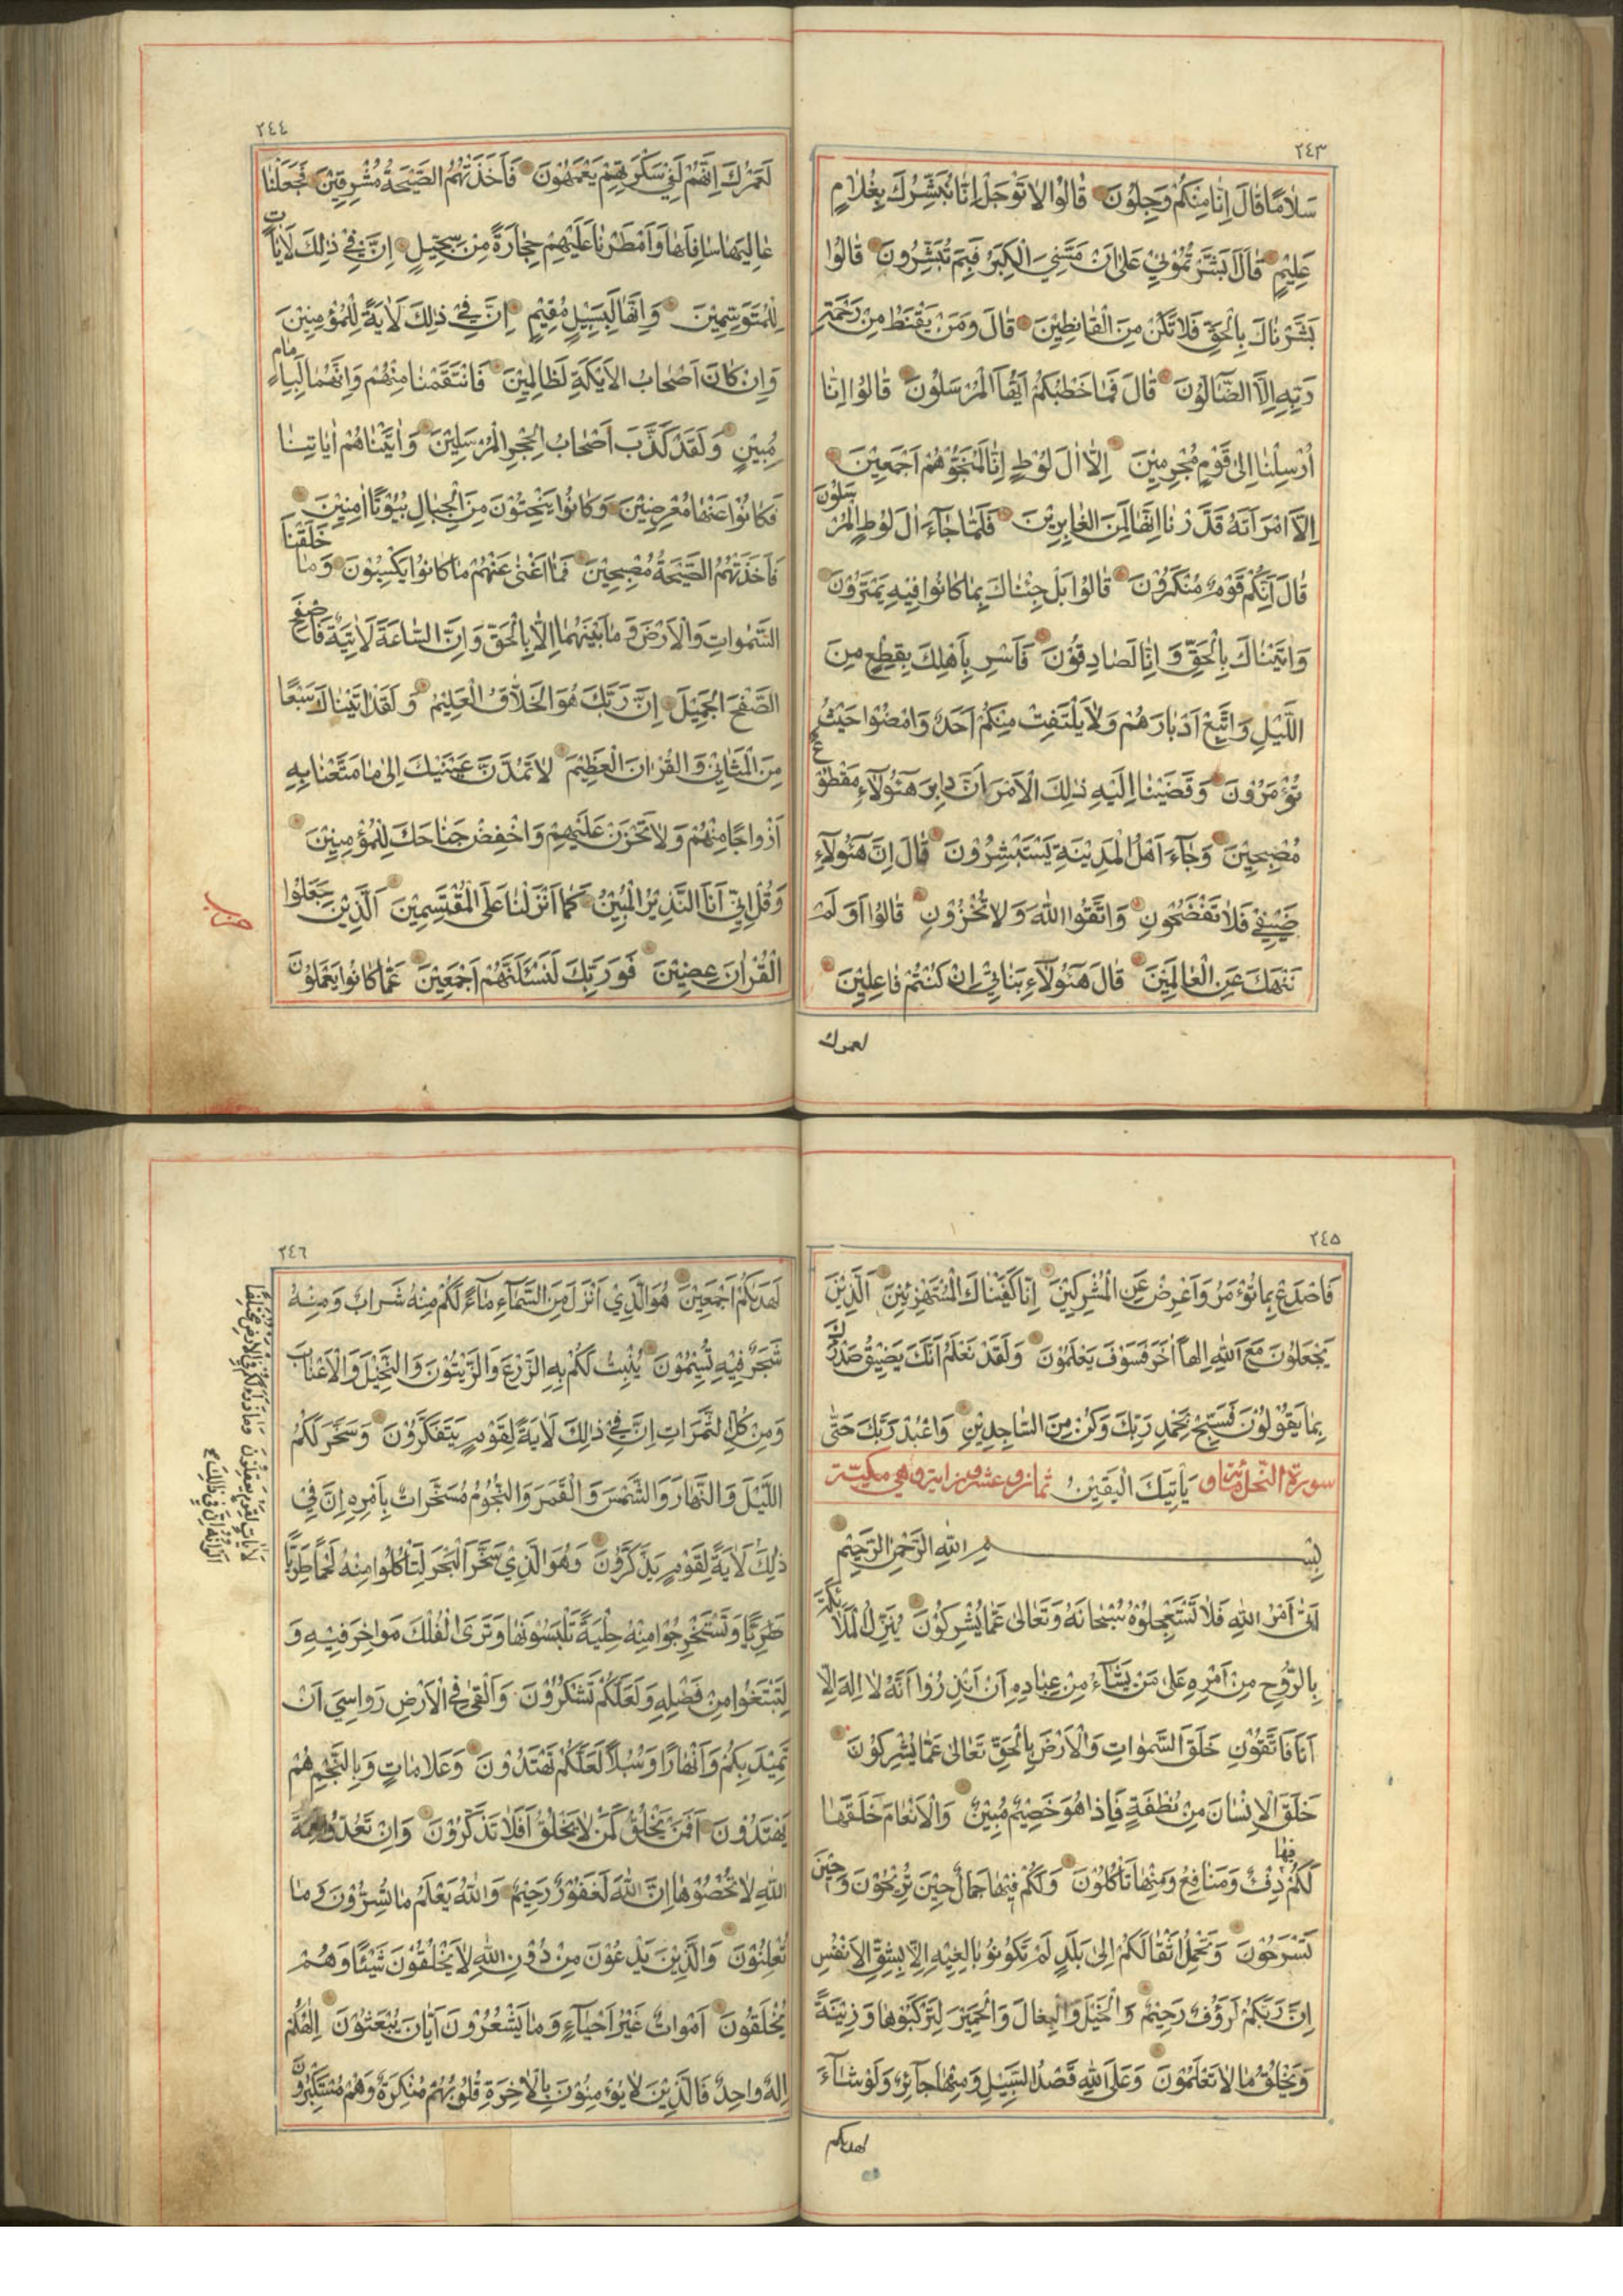 ٢٤٣
سَلَامًا قَالَ اِنَّا مِنْكُمْ وَجِلُوْنَ قَالُوْا لَا تَوْجَلْ اِنَّا نُبَشِّرُكَ بِغُلَامٍ
عَلِيْمٍ قَالَ اَبَشَّرْتُمُوْنِيْ عَلٰى اَنْ مَسَّنِيَ الْكِبَرُ فَبِمَ تُبَشِّرُوْنَ قَالُوْا
بَشَّرْنَاكَ بِالْحَقِّ فَلَا تَكُنْ مِنَ الْقَانِطِيْنَ قَالَ وَمَنْ يَقْنَطُ مِنْ رَحْمَةِ
رَبِّهِ اِلَّا الضَّآلُّوْنَ قَالَ فَمَا خَطْبُكُمْ اَيُّهَا الْمُرْسَلُوْنَ قَالُوْا اِنَّا
اُرْسِلْنَا اِلٰى قَوْمٍ مُجْرِمِيْنَ اِلَّا اٰلَ لُوْطٍ اِنَّا لَمُنَجُّوْهُمْ اَجْمَعِيْنَ
اِلَّا امْرَاَتَهُ قَدَّرْنَا اِنَّهَا لَمِنَ الْغَابِرِيْنَ فَلَمَّا جَآءَ اٰلَ لُوْطٍ الْمُرْسَلُوْنَ
قَالَ اِنَّكُمْ قَوْمٌ مُنْكَرُوْنَ قَالُوْا بَلْ جِئْنَاكَ بِمَا كَانُوْا فِيْهِ يَمْتَرُوْنَ
وَاَتَيْنَاكَ بِالْحَقِّ وَاِنَّا لَصَادِقُوْنَ فَاَسْرِ بِاَهْلِكَ بِقِطْعٍ مِنَ
اللَّيْلِ وَاتَّبِعْ اَدْبَارَهُمْ وَلَا يَلْتَفِتْ مِنْكُمْ اَحَدٌ وَامْضُوْا حَيْثُ
تُؤْمَرُوْنَ وَقَضَيْنَا اِلَيْهِ ذٰلِكَ الْاَمْرَ اَنَّ دَابِرَ هٰٓؤُلَآءِ مَقْطُوْعٌ
مُصْبِحِيْنَ وَجَآءَ اَهْلُ الْمَدِيْنَةِ يَسْتَبْشِرُوْنَ قَالَ اِنَّ هٰٓؤُلَآءِ
ضَيْفِيْ فَلَا تَفْضَحُوْنِ وَاتَّقُوا اللّٰهَ وَلَا تُخْزُوْنِ قَالُوْا اَوَلَمْ
نَنْهَكَ عَنِ الْعَالَمِيْنَ قَالَ هٰٓؤُلَآءِ بَنَاتِيْ اِنْ كُنْتُمْ فَاعِلِيْنَ
لعمرك
٢٤٤
لَعَمْرُكَ اِنَّهُمْ لَفِيْ سَكْرَتِهِمْ يَعْمَهُوْنَ فَاَخَذَتْهُمُ الصَّيْحَةُ مُشْرِقِيْنَ فَجَعَلْنَا
عَالِيَهَا سَافِلَهَا وَاَمْطَرْنَا عَلَيْهِمْ حِجَارَةً مِنْ سِجِّيْلٍ اِنَّ فِيْ ذٰلِكَ لَاٰيَاتٍ
لِلْمُتَوَسِّمِيْنَ وَاِنَّهَا لَبِسَبِيْلٍ مُقِيْمٍ اِنَّ فِيْ ذٰلِكَ لَاٰيَةً لِلْمُؤْمِنِيْنَ
وَاِنْ كَانَ اَصْحَابُ الْاَيْكَةِ لَظَالِمِيْنَ فَانْتَقَمْنَا مِنْهُمْ وَاِنَّهُمَا لَبِاِمَامٍ
مُبِيْنٍ وَلَقَدْ كَذَّبَ اَصْحَابُ الْحِجْرِ الْمُرْسَلِيْنَ وَاٰتَيْنَاهُمْ اٰيَاتِنَا
فَكَانُوْا عَنْهَا مُعْرِضِيْنَ وَكَانُوْا يَنْحِتُوْنَ مِنَ الْجِبَالِ بُيُوْتًا اٰمِنِيْنَ
فَاَخَذَتْهُمُ الصَّيْحَةُ مُصْبِحِيْنَ فَمَا اَغْنٰى عَنْهُمْ مَا كَانُوْا يَكْسِبُوْنَ وَمَا خَلَقْنَا
السَّمٰوَاتِ وَالْاَرْضَ وَمَا بَيْنَهُمَا اِلَّا بِالْحَقِّ وَاِنَّ السَّاعَةَ لَاٰتِيَةٌ فَاصْفَحِ
الصَّفْحَ الْجَمِيْلَ اِنَّ رَبَّكَ هُوَ الْخَلَّاقُ الْعَلِيْمُ وَلَقَدْ اٰتَيْنَاكَ سَبْعًا
مِنَ الْمَثَانِيْ وَالْقُرْاٰنَ الْعَظِيْمَ لَا تَمُدَّنَّ عَيْنَيْكَ اِلٰى مَا مَتَّعْنَا بِهِ
اَزْوَاجًا مِنْهُمْ وَلَا تَحْزَنْ عَلَيْهِمْ وَاخْفِضْ جَنَاحَكَ لِلْمُؤْمِنِيْنَ
وَقُلْ اِنِّيْ اَنَا النَّذِيْرُ الْمُبِيْنُ كَمَا اَنْزَلْنَا عَلَى الْمُقْتَسِمِيْنَ اَلَّذِيْنَ جَعَلُوا
حزب
الْقُرْاٰنَ عِضِيْنَ فَوَرَبِّكَ لَنَسْئَلَنَّهُمْ اَجْمَعِيْنَ عَمَّا كَانُوْا يَعْمَلُوْنَ
٢٤٥
فَاصْدَعْ بِمَا تُؤْمَرُ وَاَعْرِضْ عَنِ الْمُشْرِكِيْنَ اِنَّا كَفَيْنَاكَ الْمُسْتَهْزِئِيْنَ اَلَّذِيْنَ
يَجْعَلُوْنَ مَعَ اللّٰهِ اِلٰهًا اٰخَرَ فَسَوْفَ يَعْلَمُوْنَ وَلَقَدْ نَعْلَمُ اَنَّكَ يَضِيْقُ صَدْرُكَ
بِمَا يَقُوْلُوْنَ فَسَبِّحْ بِحَمْدِ رَبِّكَ وَكُنْ مِنَ السَّاجِدِيْنَ وَاعْبُدْ رَبَّكَ حَتّٰى
سورة النحل مائة و يَاْتِيَكَ الْيَقِيْنُ ثمان و عشرون اية وهي مكية
بِسْمِ اللّٰهِ الرَّحْمٰنِ الرَّحِيْمِ
اَتٰى اَمْرُ اللّٰهِ فَلَا تَسْتَعْجِلُوْهُ سُبْحَانَهُ وَتَعَالٰى عَمَّا يُشْرِكُوْنَ يُنَزِّلُ الْمَلٰٓئِكَةَ
بِالرُّوْحِ مِنْ اَمْرِهِ عَلٰى مَنْ يَشَآءُ مِنْ عِبَادِهِ اَنْ اَنْذِرُوْا اَنَّهُ لَا اِلٰهَ اِلَّا
اَنَا فَاتَّقُوْنِ خَلَقَ السَّمٰوَاتِ وَالْاَرْضَ بِالْحَقِّ تَعَالٰى عَمَّا يُشْرِكُوْنَ
خَلَقَ الْاِنْسَانَ مِنْ نُطْفَةٍ فَاِذَا هُوَ خَصِيْمٌ مُبِيْنٌ وَالْاَنْعَامَ خَلَقَهَا
لَكُمْ فِيْهَا دِفْءٌ وَمَنَافِعُ وَمِنْهَا تَاْكُلُوْنَ وَلَكُمْ فِيْهَا جَمَالٌ حِيْنَ تُرِيْحُوْنَ وَحِيْنَ
تَسْرَحُوْنَ وَتَحْمِلُ اَثْقَالَكُمْ اِلٰى بَلَدٍ لَمْ تَكُوْنُوْا بَالِغِيْهِ اِلَّا بِشِقِّ الْاَنْفُسِ
اِنَّ رَبَّكُمْ لَرَؤُفٌ رَحِيْمٌ وَالْخَيْلَ وَالْبِغَالَ وَالْحَمِيْرَ لِتَرْكَبُوْهَا وَزِيْنَةً
وَيَخْلُقُ مَا لَا تَعْلَمُوْنَ وَعَلَى اللّٰهِ قَصْدُ السَّبِيْلِ وَمِنْهَا جَآئِرٌ وَلَوْ شَآءَ
لهديكم
٢٤٦
لَهَدٰيكُمْ اَجْمَعِيْنَ هُوَ الَّذِيْ اَنْزَلَ مِنَ السَّمَآءِ مَآءً لَكُمْ مِنْهُ شَرَابٌ وَمِنْهُ
شَجَرٌ فِيْهِ تُسِيْمُوْنَ يُنْبِتُ لَكُمْ بِهِ الزَّرْعَ وَالزَّيْتُوْنَ وَالنَّخِيْلَ وَالْاَعْنَابَ
وَمِنْ كُلِّ الثَّمَرَاتِ اِنَّ فِيْ ذٰلِكَ لَاٰيَةً لِقَوْمٍ يَتَفَكَّرُوْنَ وَسَخَّرَ لَكُمُ
اللَّيْلَ وَالنَّهَارَ وَالشَّمْسَ وَالْقَمَرَ وَالنُّجُوْمُ مُسَخَّرَاتٌ بِاَمْرِهِ اِنَّ فِيْ
ذٰلِكَ لَاٰيَةً لِقَوْمٍ يَذَّكَّرُوْنَ وَهُوَ الَّذِيْ سَخَّرَ الْبَحْرَ لِتَاْكُلُوْا مِنْهُ لَحْمًا طَرِيًّا
طَرِيًّا وَتَسْتَخْرِجُوْا مِنْهُ حِلْيَةً تَلْبَسُوْنَهَا وَتَرَى الْفُلْكَ مَوَاخِرَ فِيْهِ وَ
لِتَبْتَغُوْا مِنْ فَضْلِهِ وَلَعَلَّكُمْ تَشْكُرُوْنَ وَاَلْقٰى فِي الْاَرْضِ رَوَاسِيَ اَنْ
تَمِيْدَ بِكُمْ وَاَنْهَارًا وَسُبُلًا لَعَلَّكُمْ تَهْتَدُوْنَ وَعَلَامَاتٍ وَبِالنَّجْمِ هُمْ
يَهْتَدُوْنَ اَفَمَنْ يَخْلُقُ كَمَنْ لَا يَخْلُقُ اَفَلَا تَذَكَّرُوْنَ وَاِنْ تَعُدُّوْا نِعْمَةَ
اللّٰهِ لَا تُحْصُوْهَا اِنَّ اللّٰهَ لَغَفُوْرٌ رَحِيْمٌ وَاللّٰهُ يَعْلَمُ مَا تُسِرُّوْنَ وَمَا
تُعْلِنُوْنَ وَالَّذِيْنَ يَدْعُوْنَ مِنْ دُوْنِ اللّٰهِ لَا يَخْلُقُوْنَ شَيْئًا وَهُمْ
يُخْلَقُوْنَ اَمْوَاتٌ غَيْرُ اَحْيَآءٍ وَمَا يَشْعُرُوْنَ اَيَّانَ يُبْعَثُوْنَ اِلٰهُكُمْ
اِلٰهٌ وَاحِدٌ فَالَّذِيْنَ لَا يُؤْمِنُوْنَ بِالْاٰخِرَةِ قُلُوْبُهُمْ مُنْكِرَةٌ وَهُمْ مُسْتَكْبِرُوْنَ
لَاٰيَاتٍ لِقَوْمٍ يَعْقِلُوْنَ وَمَا ذَرَاَ لَكُمْ فِي الْاَرْضِ مُخْتَلِفًا
اَلْوَانُهُ اِنَّ فِيْ ذٰلِكَ